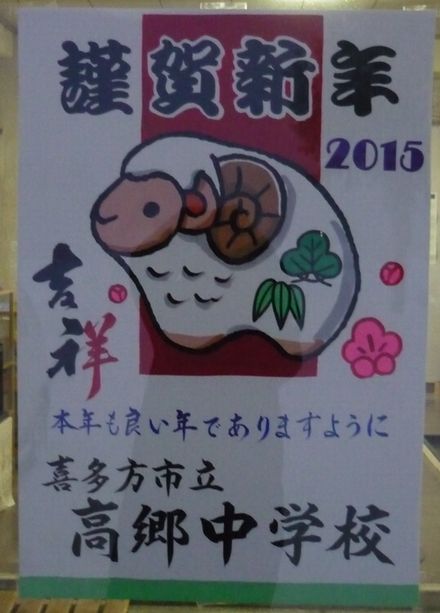 謹賀新年
2015
吉祥
本年も良い年でありますように
喜多方市立
高郷中学校